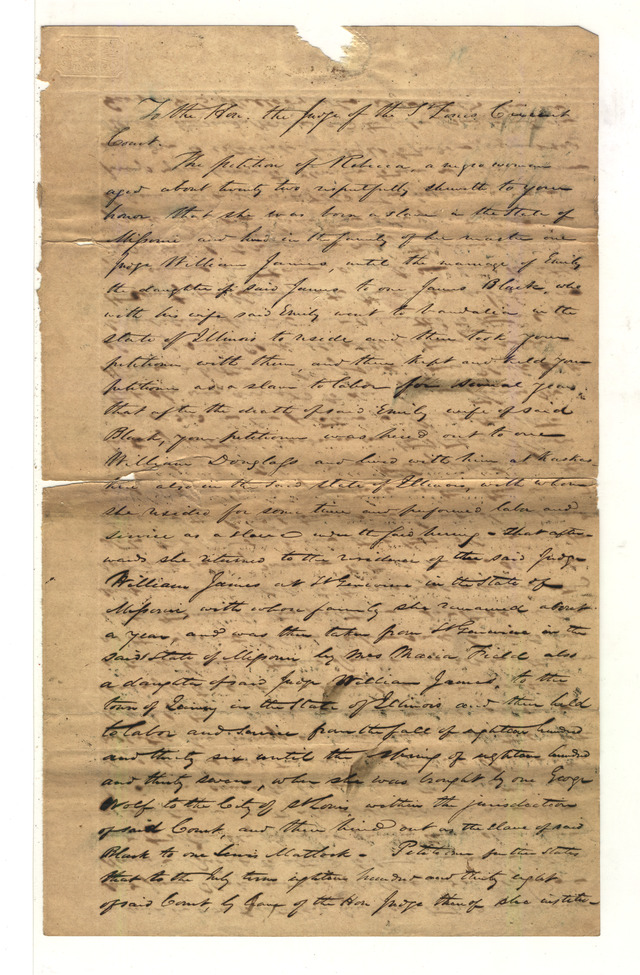 To the Hon. the Judge of the St Louis Circuit
Court.
The petition of Rebecca, a negro woman
aged about twenty two respectfully sheweth to your
honor, that she was born a slave in the State of
Missouri and lived in the family of her master one
Judge William James, until the marriage of Emily
the daughter of said James to one James Black, who
with his wife said Emily went to Vandalia in the
state of Illinois to reside and then took your
petitioner with them, and there kept and held your
petitioner as a slave to labor for several years
that after the death of said Emily wife of said
Black, your petitioner was hired out to one
William Douglass and lived with him at Kaskas
kia also in the said state of Illinois, with whom
she resided for some time and performed labor and
service as a slave under the said hiring - that after-
wards she returned to the residence of the said Judge
William James at St Genevieve in the State of
Missouri, with whose family she remained about
a year, and was then taken from St Genevieve in the
said State of Missouri by Mrs Maria Field also
a daughter of said Judge William James, to the
town of Quincy in the State of Illinois and there held
to labor and service from the fall of eighteen hundred
and thirty six until the Spring of eighteen hundred
and thirty seven, when she was brought by one George
Wolf to the City of St Louis within the jurisdiction
of said Court, and there hired out as the slave of said
Black to one Lewis Matlock - Petitioner further states
that to the July term eighteen hundred and thirty eight
of said Court, by leave of the Hon Judge thereof she institu-